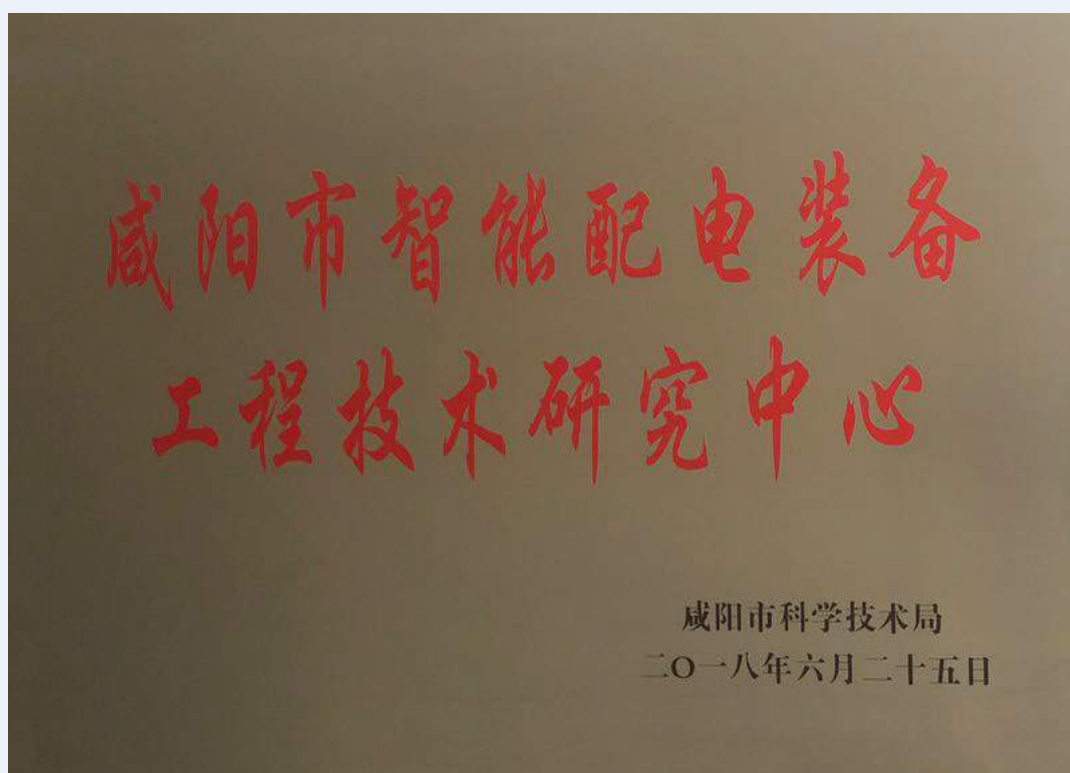 咸阳市智能配电装备
工程技术研究中心
咸阳市科学技术局
二〇一八年六月二十五日